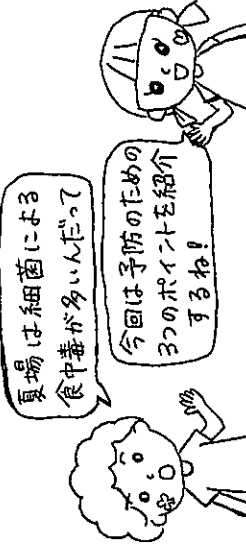 夏場は細菌による
食中毒が多いんだって
今回は予防のための
3つのポイントを紹介
するね!